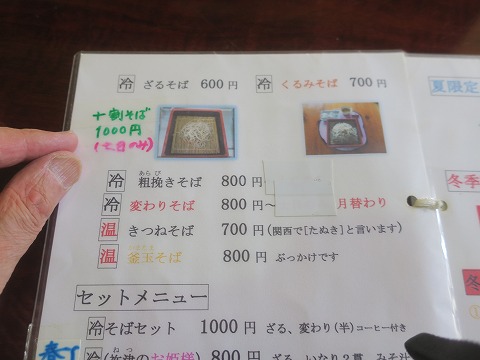 冷 ざるそば 600円
冷 くるみそば 700円
十割そば
1000円
(土日のみ)
あらび
冷 粗挽きそば 800円
冷 変わりそば 800円~ 月替わり
温 きつねそば 700円(関西で[たぬき]と言います)
温 釜玉そば 800円 ぶっかけです
セットメニュー
冷 そばセット 1000円 ざる、変わり(半)コーヒー付き
ねつ
冷 のお姫様) 800円 ざる、いなり2貫、みそ汁
夏限定
冬季
冬